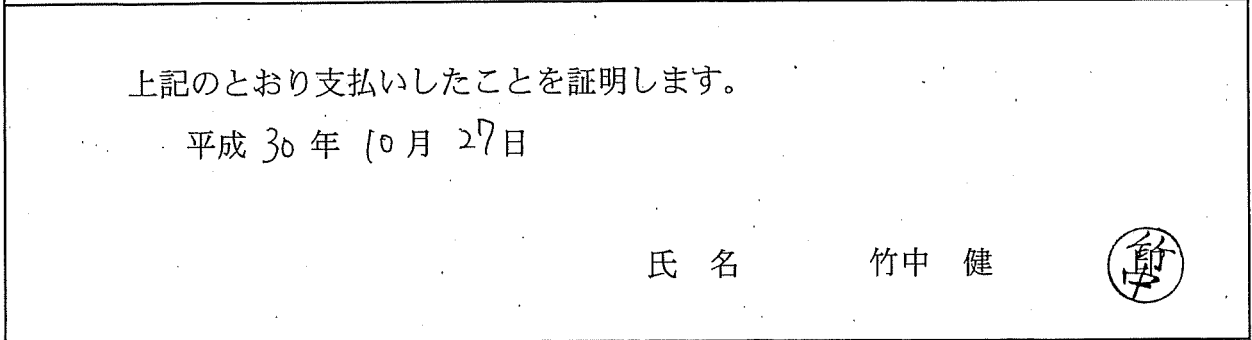 上記のとおり支払いしたことを証明します。
平成 30 年 10 月 27日
氏 名 竹中 健 竹中